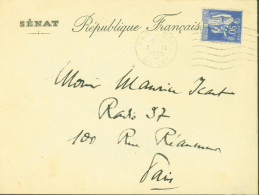 SÉNAT
République Française
Maurice
Radio 37
100 Rue Réaumur
Paris